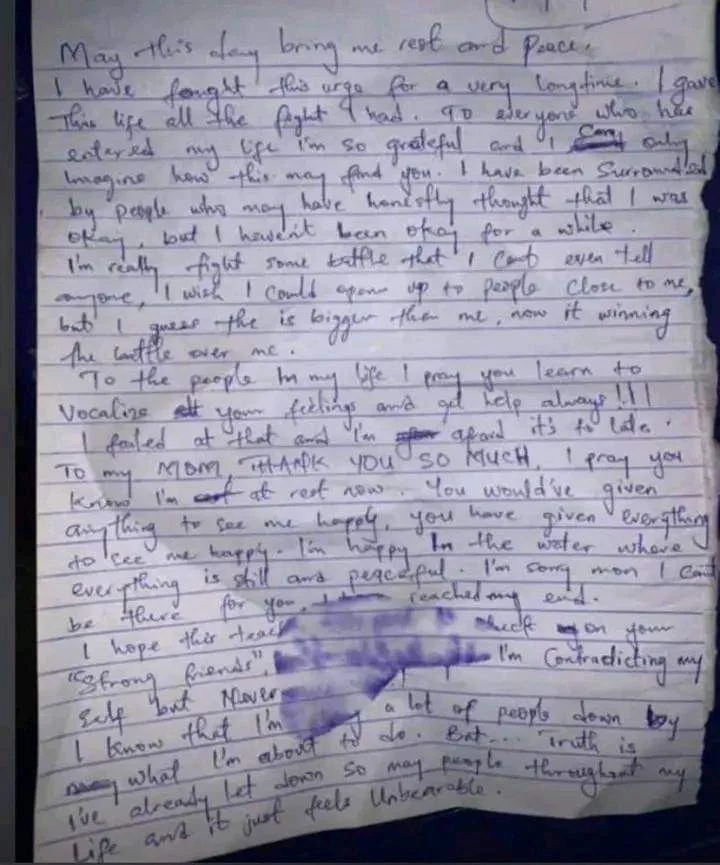 May this day bring me rest and Peace.
I have fought this urge for a very longtime. I gave
This life all the fight I had. To everyone who has
entered my life I'm so grateful and I can only
Imagine how this may find you. I have been Surrounded
by people who may have honestly thought that I was
okay, but I haven't been okay for a while.
I'm really fight some battle that I cant even tell
anyone, I wish I could open up to people close to me,
but I guess the is bigger than me, now it winning
the battle over me.
To the people In my life I pray you learn to
Vocalize your feelings and get help always!!!
I failed at that and I'm afraid it's to late.
To my MOM, THANK YOU SO MUCH, I pray you
know I'm at rest now. You would've given
anything to see me happy, you have given everything
to see me happy. I'm happy In the water where
everything is still and peaceful. I'm sorry mon I cant
be there for you, reached my end.
I hope this teach check on your
"Strong friends", I'm Contradicting my
Self but Never
I know that I'm a lot of people down by
what I'm about to do. But.... Truth is
I've already let down so may people throughout my
Life and it just feels Unbearable.